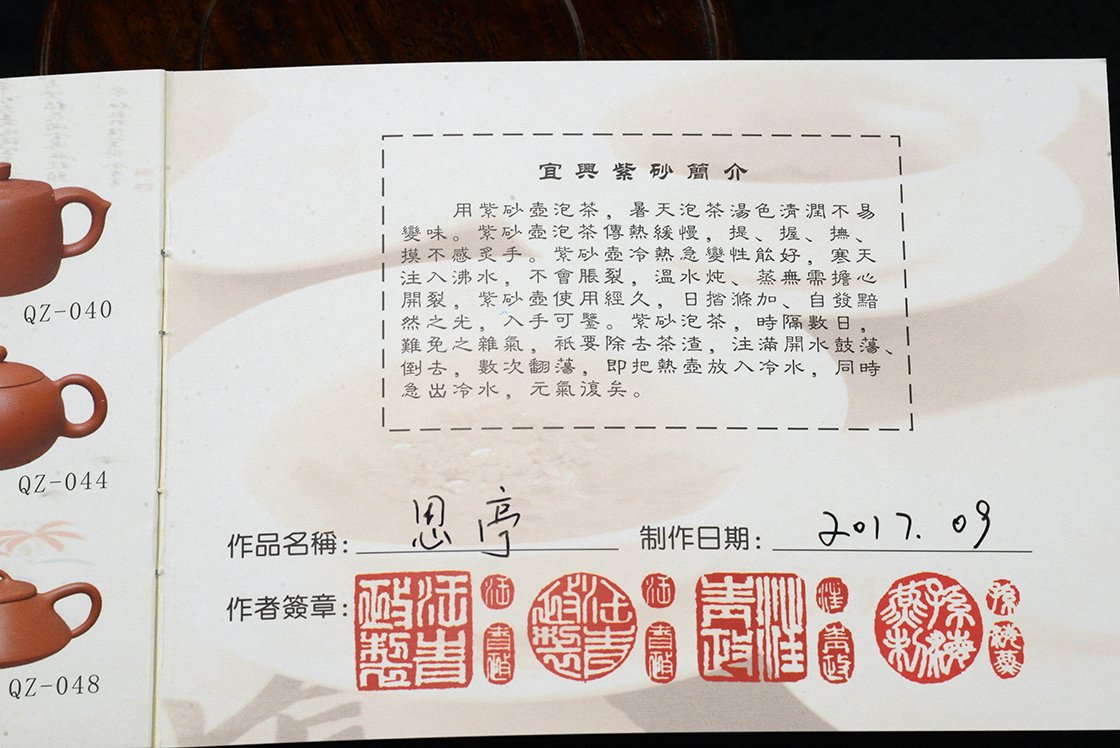 QZ-040
QZ-044
QZ-048
宜興紫砂簡介
用紫砂壺泡茶，暑天泡茶湯色清潤不易
變味。紫砂壺泡茶傳熱緩慢，提、握、撫、
摸不感炙手。紫砂壺冷熱急變性能好，寒天
注入沸水，不會脹裂，溫水炖、蒸無需擔心
開裂，紫砂壺使用經久，日揩滌加、自發黯
然之光，入手可鑒。紫砂泡茶，時隔數日，
難免之雜氣，祇要除去茶渣，注滿開水鼓蕩、
倒去，數次翻蕩，即把熱壺放入冷水，同時
急出冷水，元氣復矣。
作品名稱：思亭 制作日期：2017.09
作者簽章：